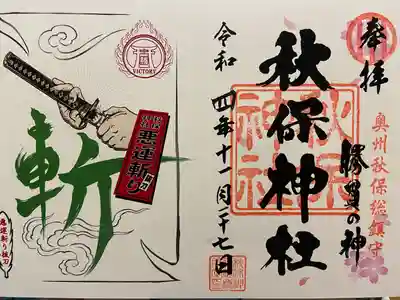 奉拝
奥州秋保総鎮守
勝負の神
秋保神社
秋保神社
令和四年十一月二十七日
VICTORY
斬
悪運斬り
悪運斬り 抜刀